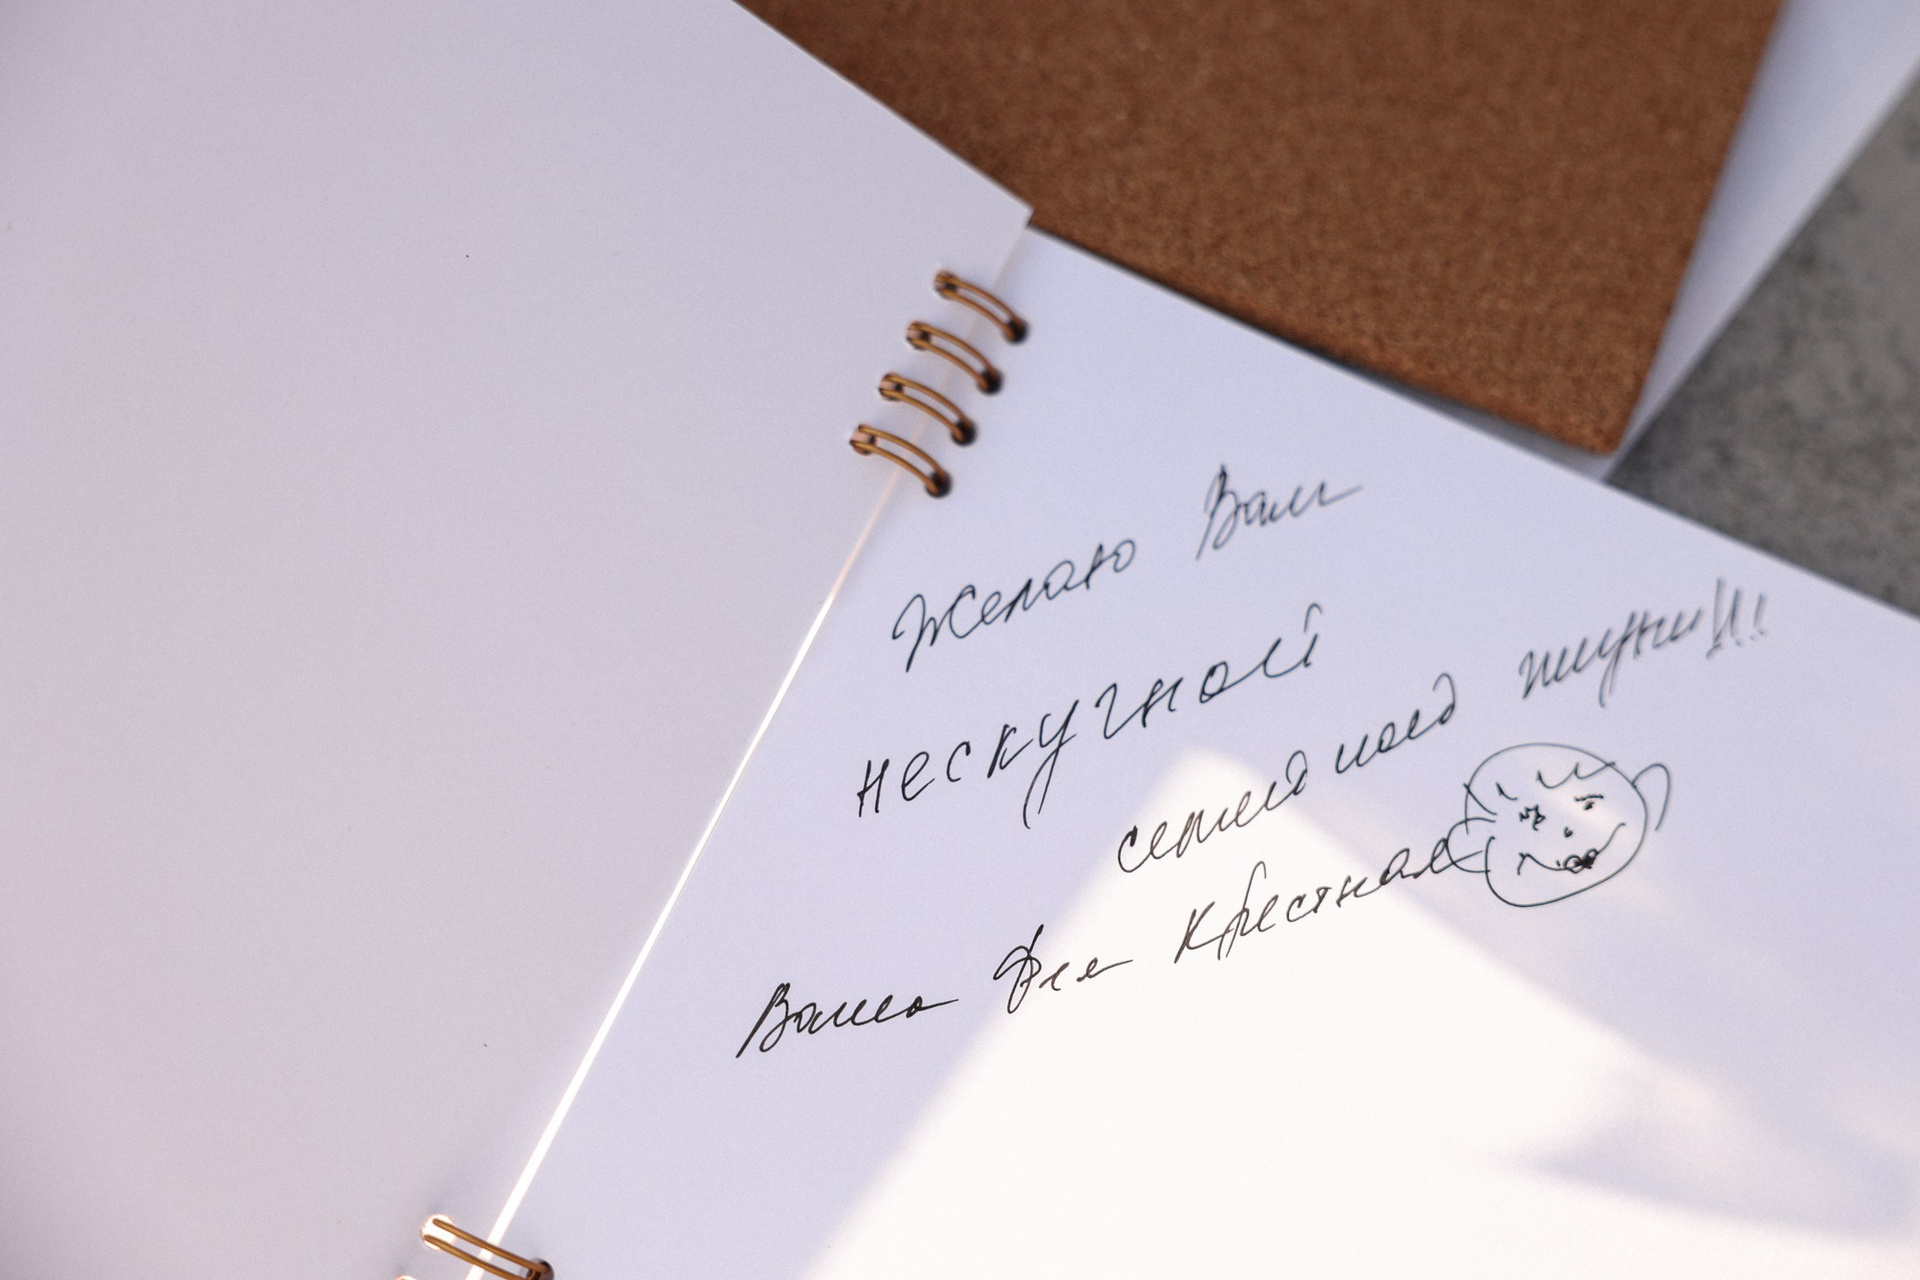 Желаю Вам
нескучной
семейной жизни!!!
Ваша Фея Крестная